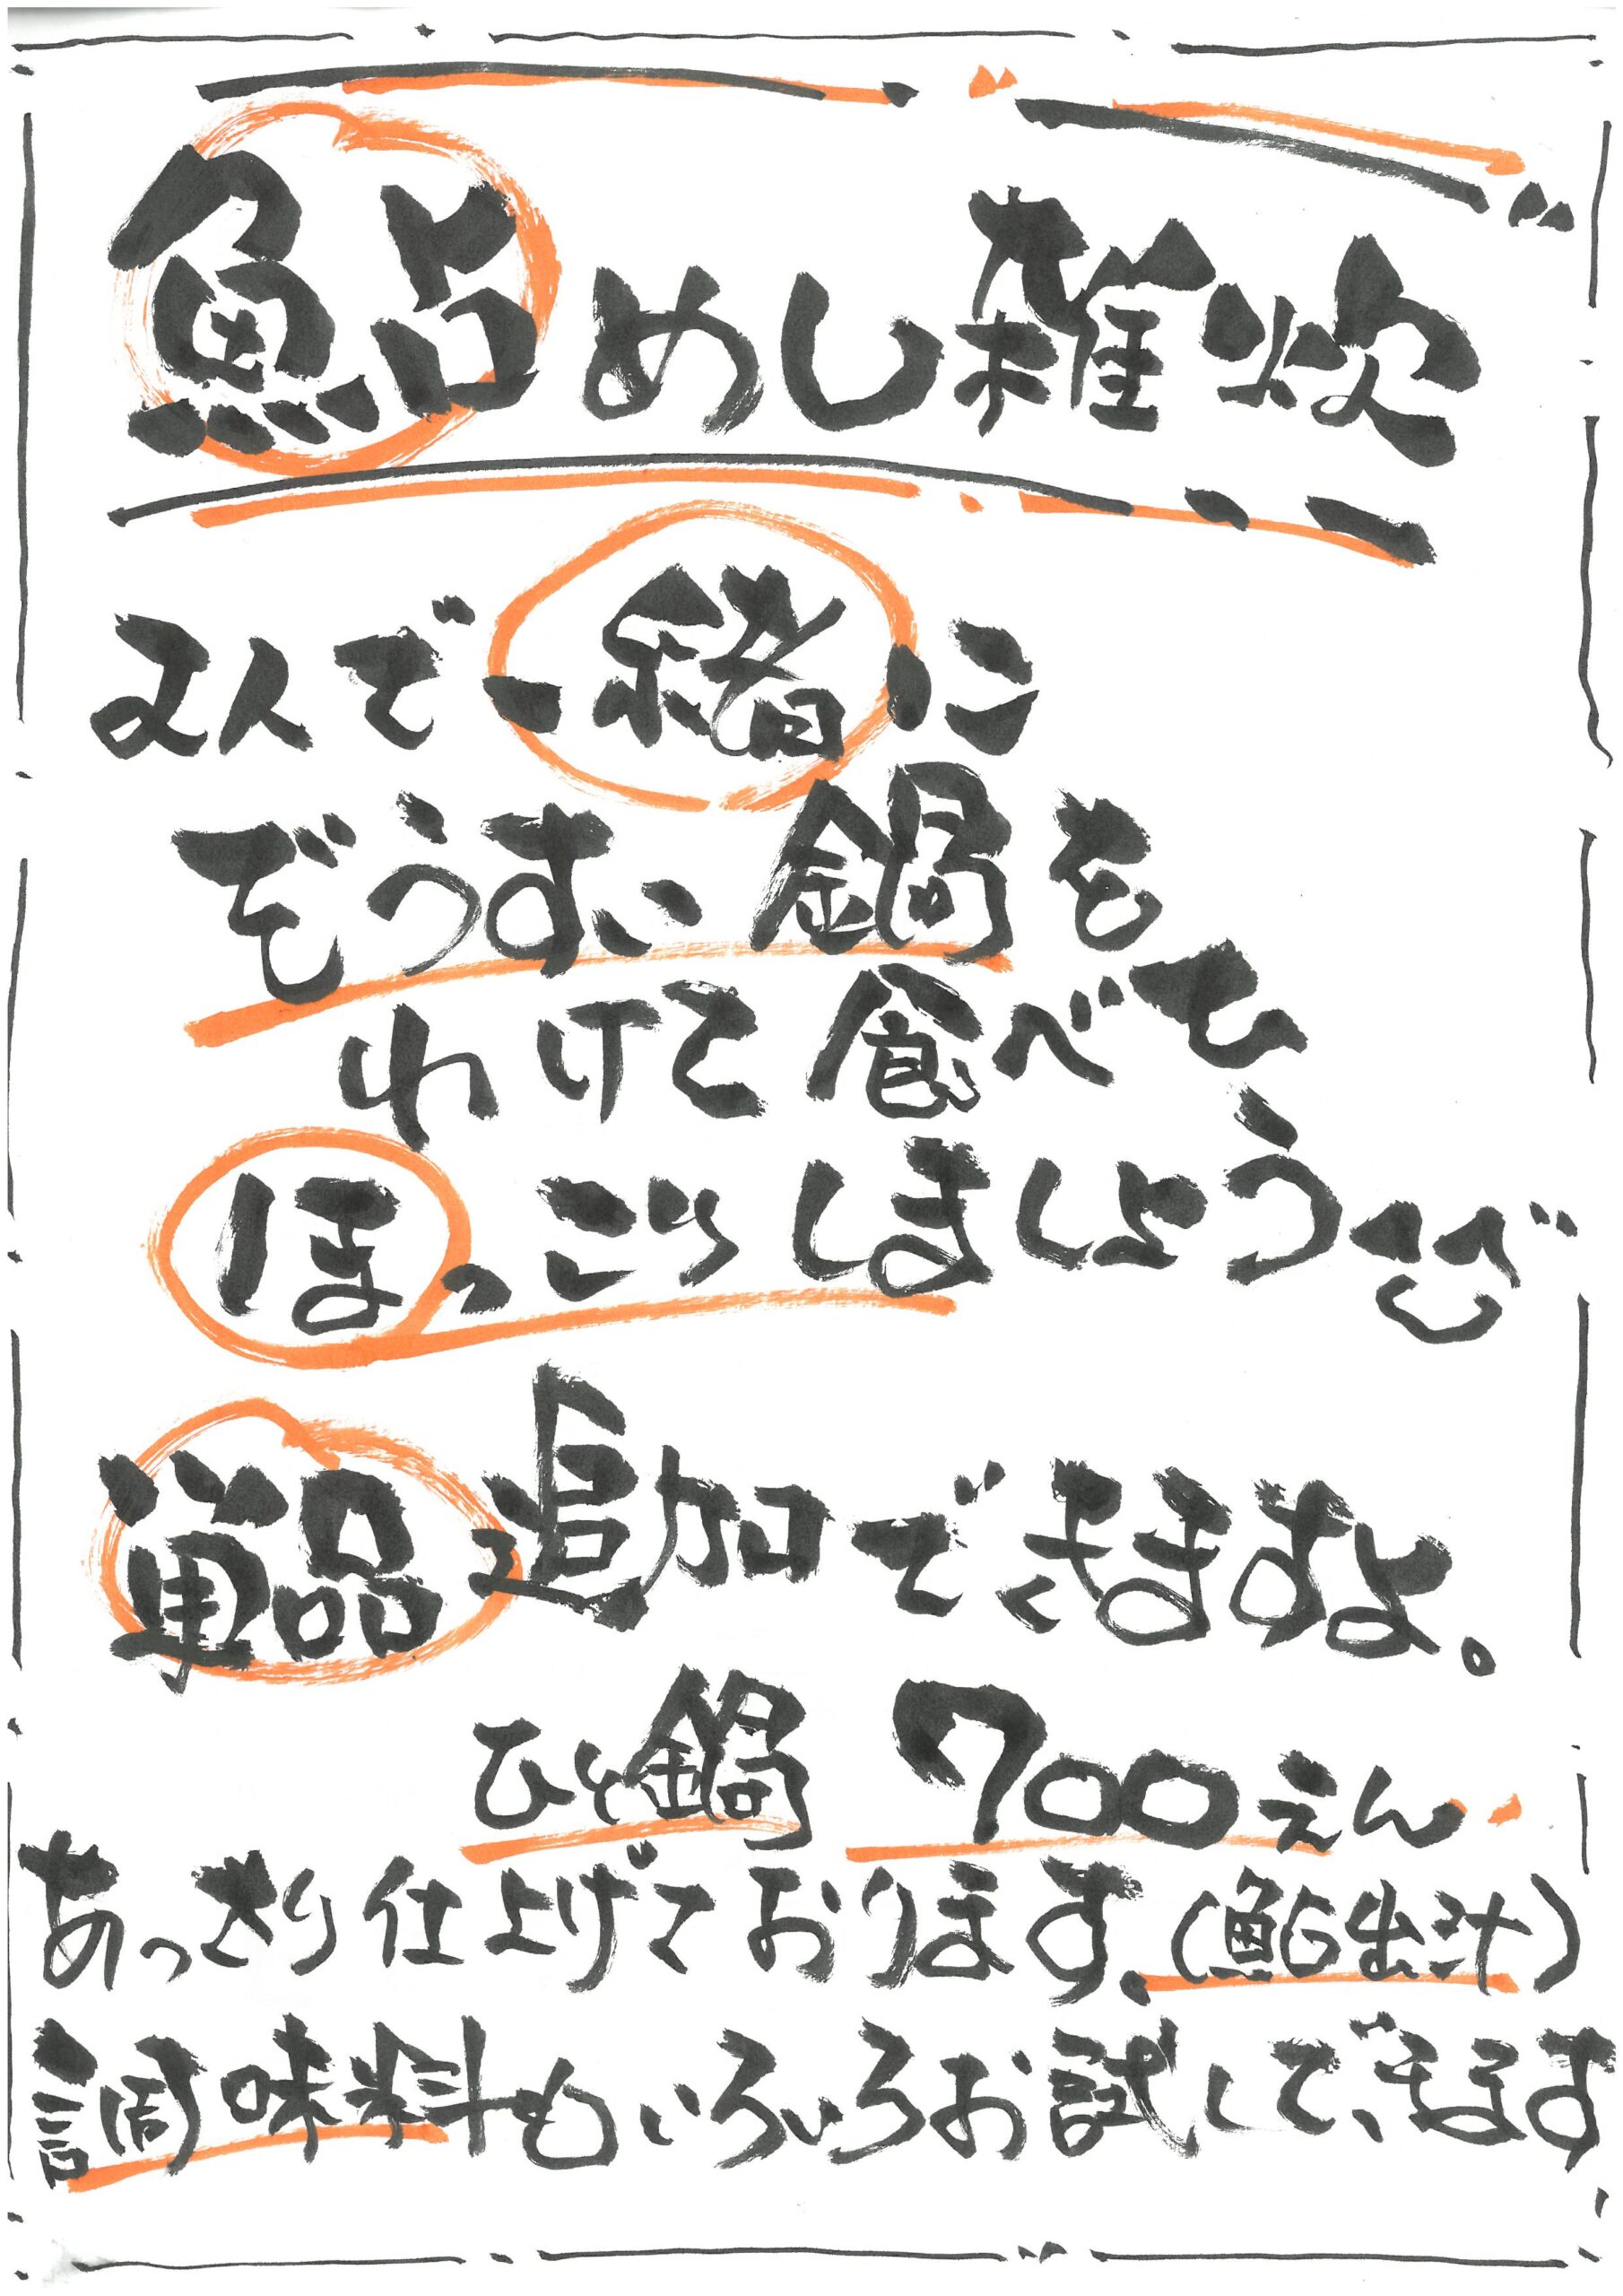 鮎めし雑炊
2人で一緒に
ぞうすい鍋を
わけて食べて
ほっこりしましょうぜ
単品追加できますよ。
ひと鍋 700えん
あっさり仕上げております。(鮎出汁)
調味料もいろいろお試しできます